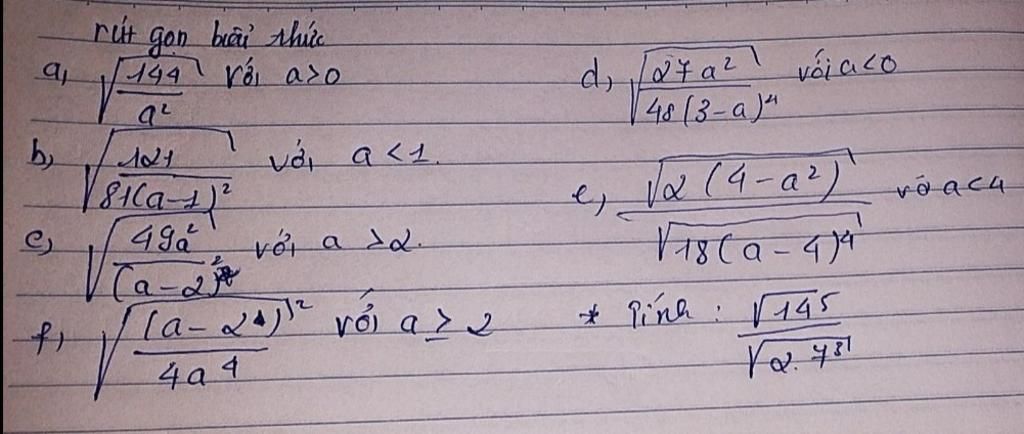 rút gọn biểu thức
a, √(144/a²) với a>0
b, √(121/81(a-1)²) với a<1.
c, √(49a²/(a-2)²) với a>2.
f, √((a-2)²/4a⁴) với a ≥ 2
d, √(27a²/48(3-a)⁴) với a<0
e, √2(4-a²)/√18(a-4)⁴ với a<4
* Tính: √14⁵/√2.7³